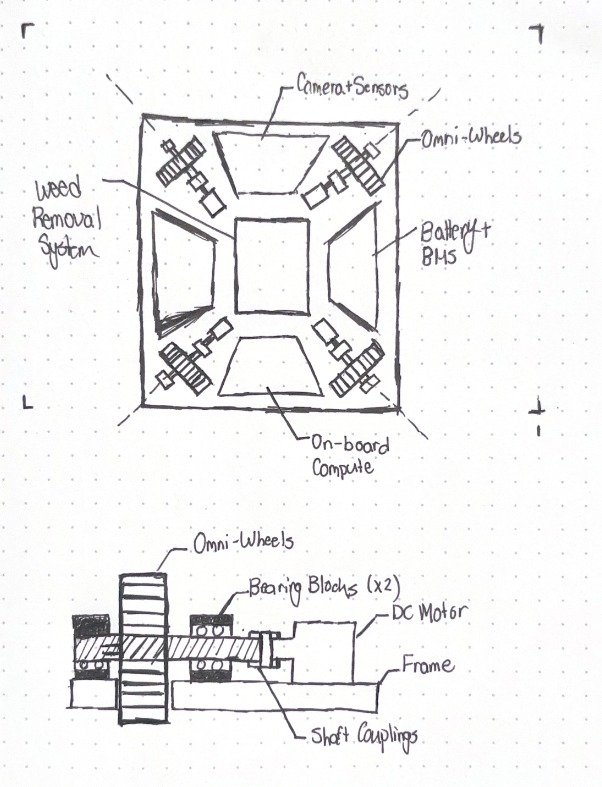 Camera+Sensors
Omni-Wheels
Weed
Removal
System
Battery+
BMS
On-board
Compute
Omni-Wheels
Bearing Blocks (x2)
DC Motor
Frame
Shaft Couplings